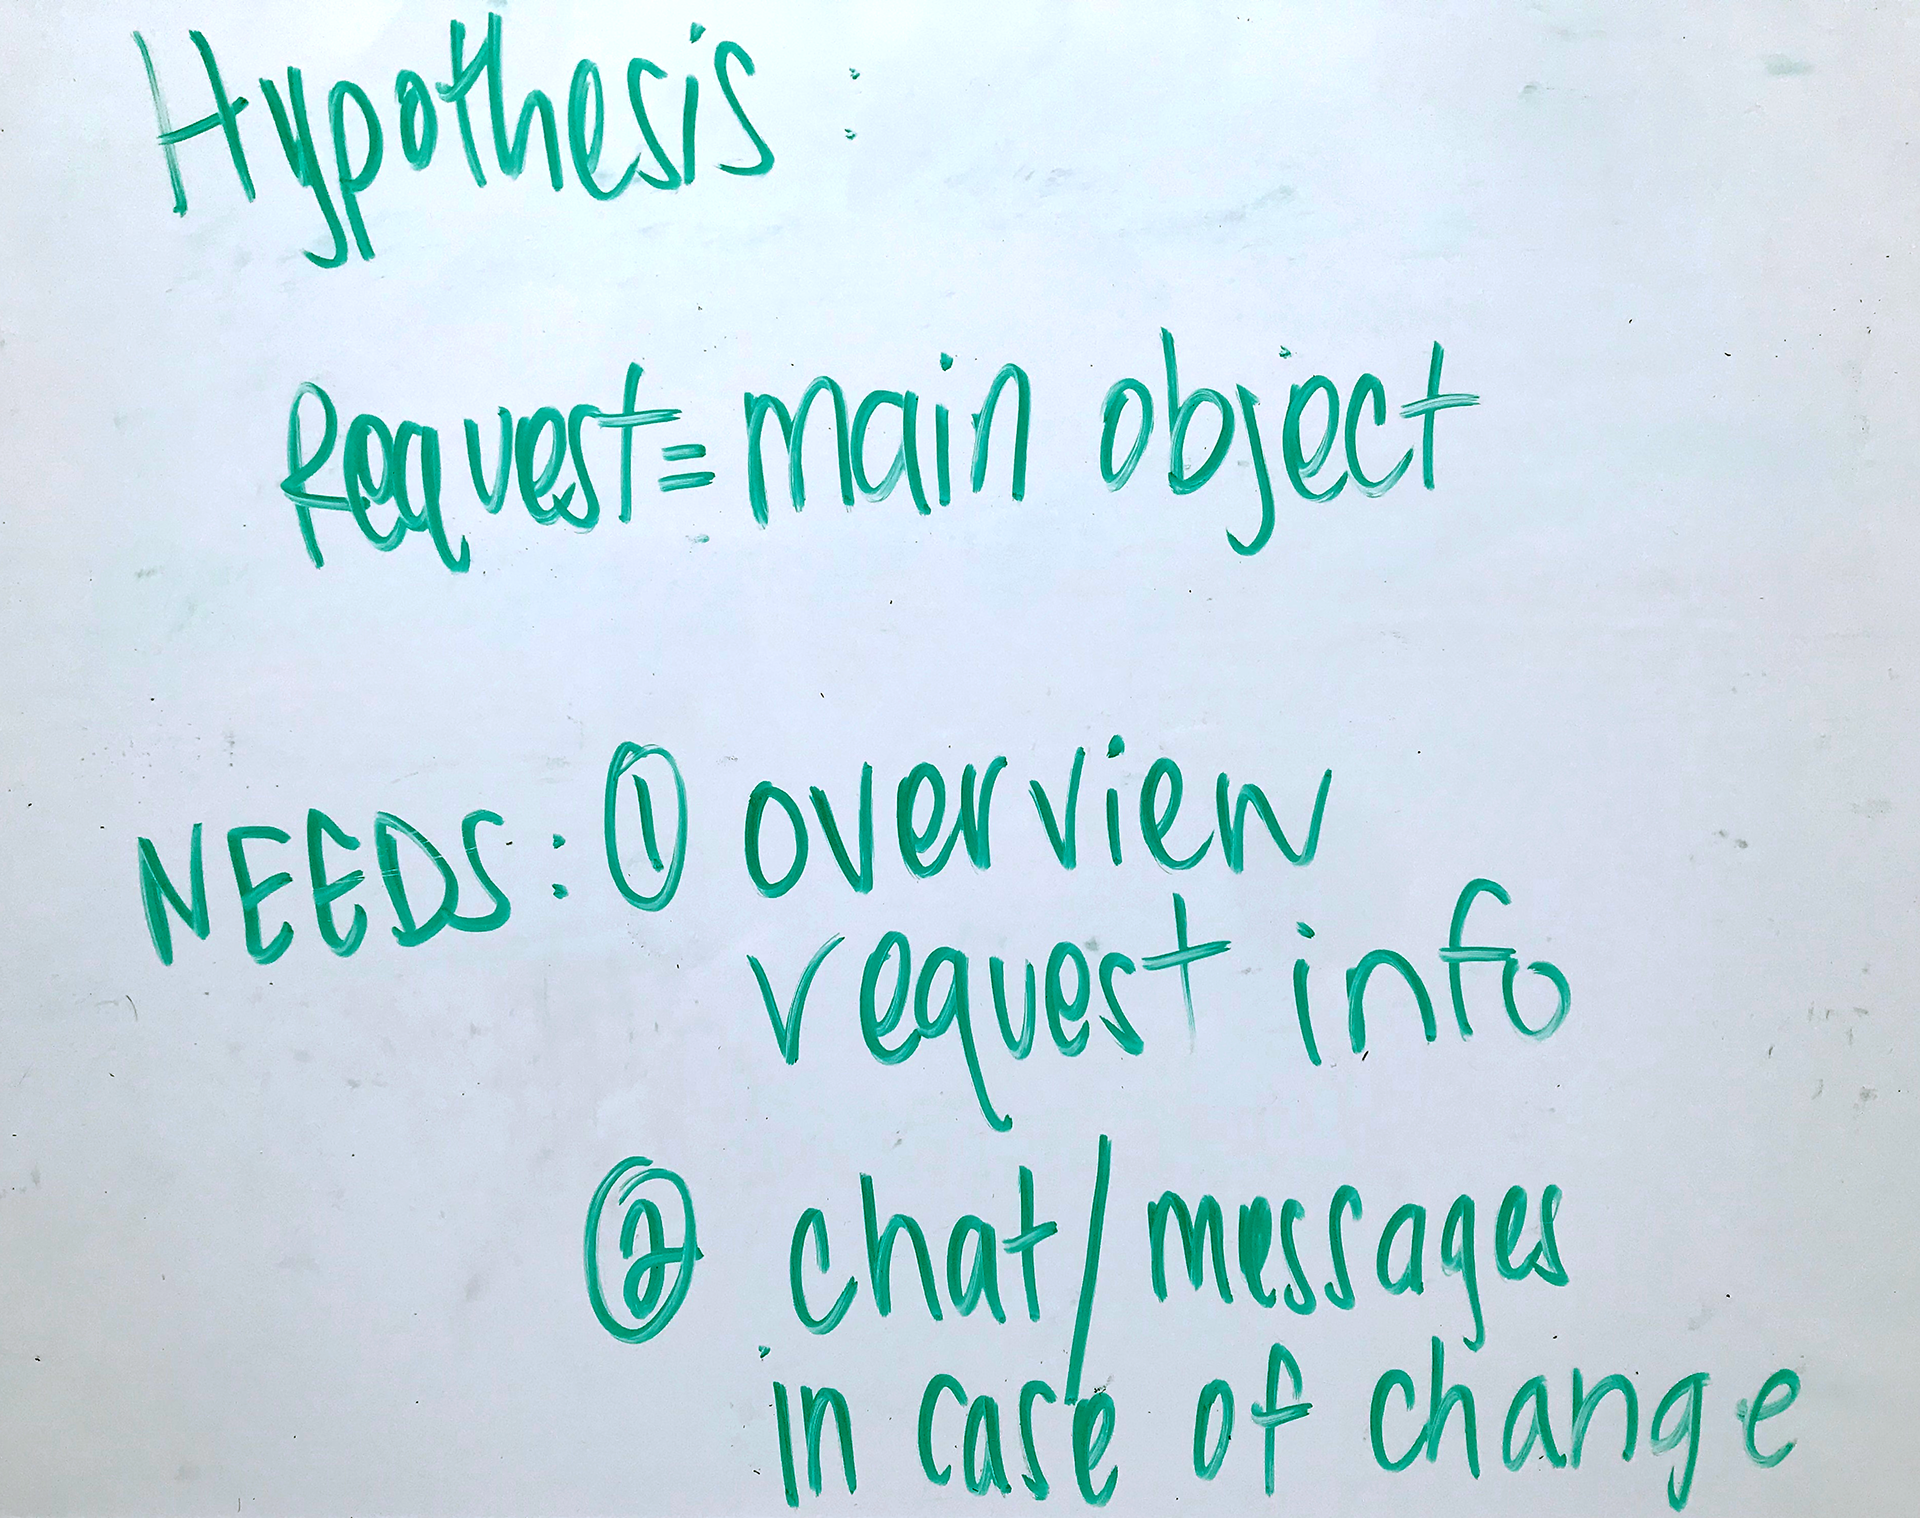 Hypothesis :
Request = main object
NEEDS : ① overview
request info
② chat/messages
in case of change